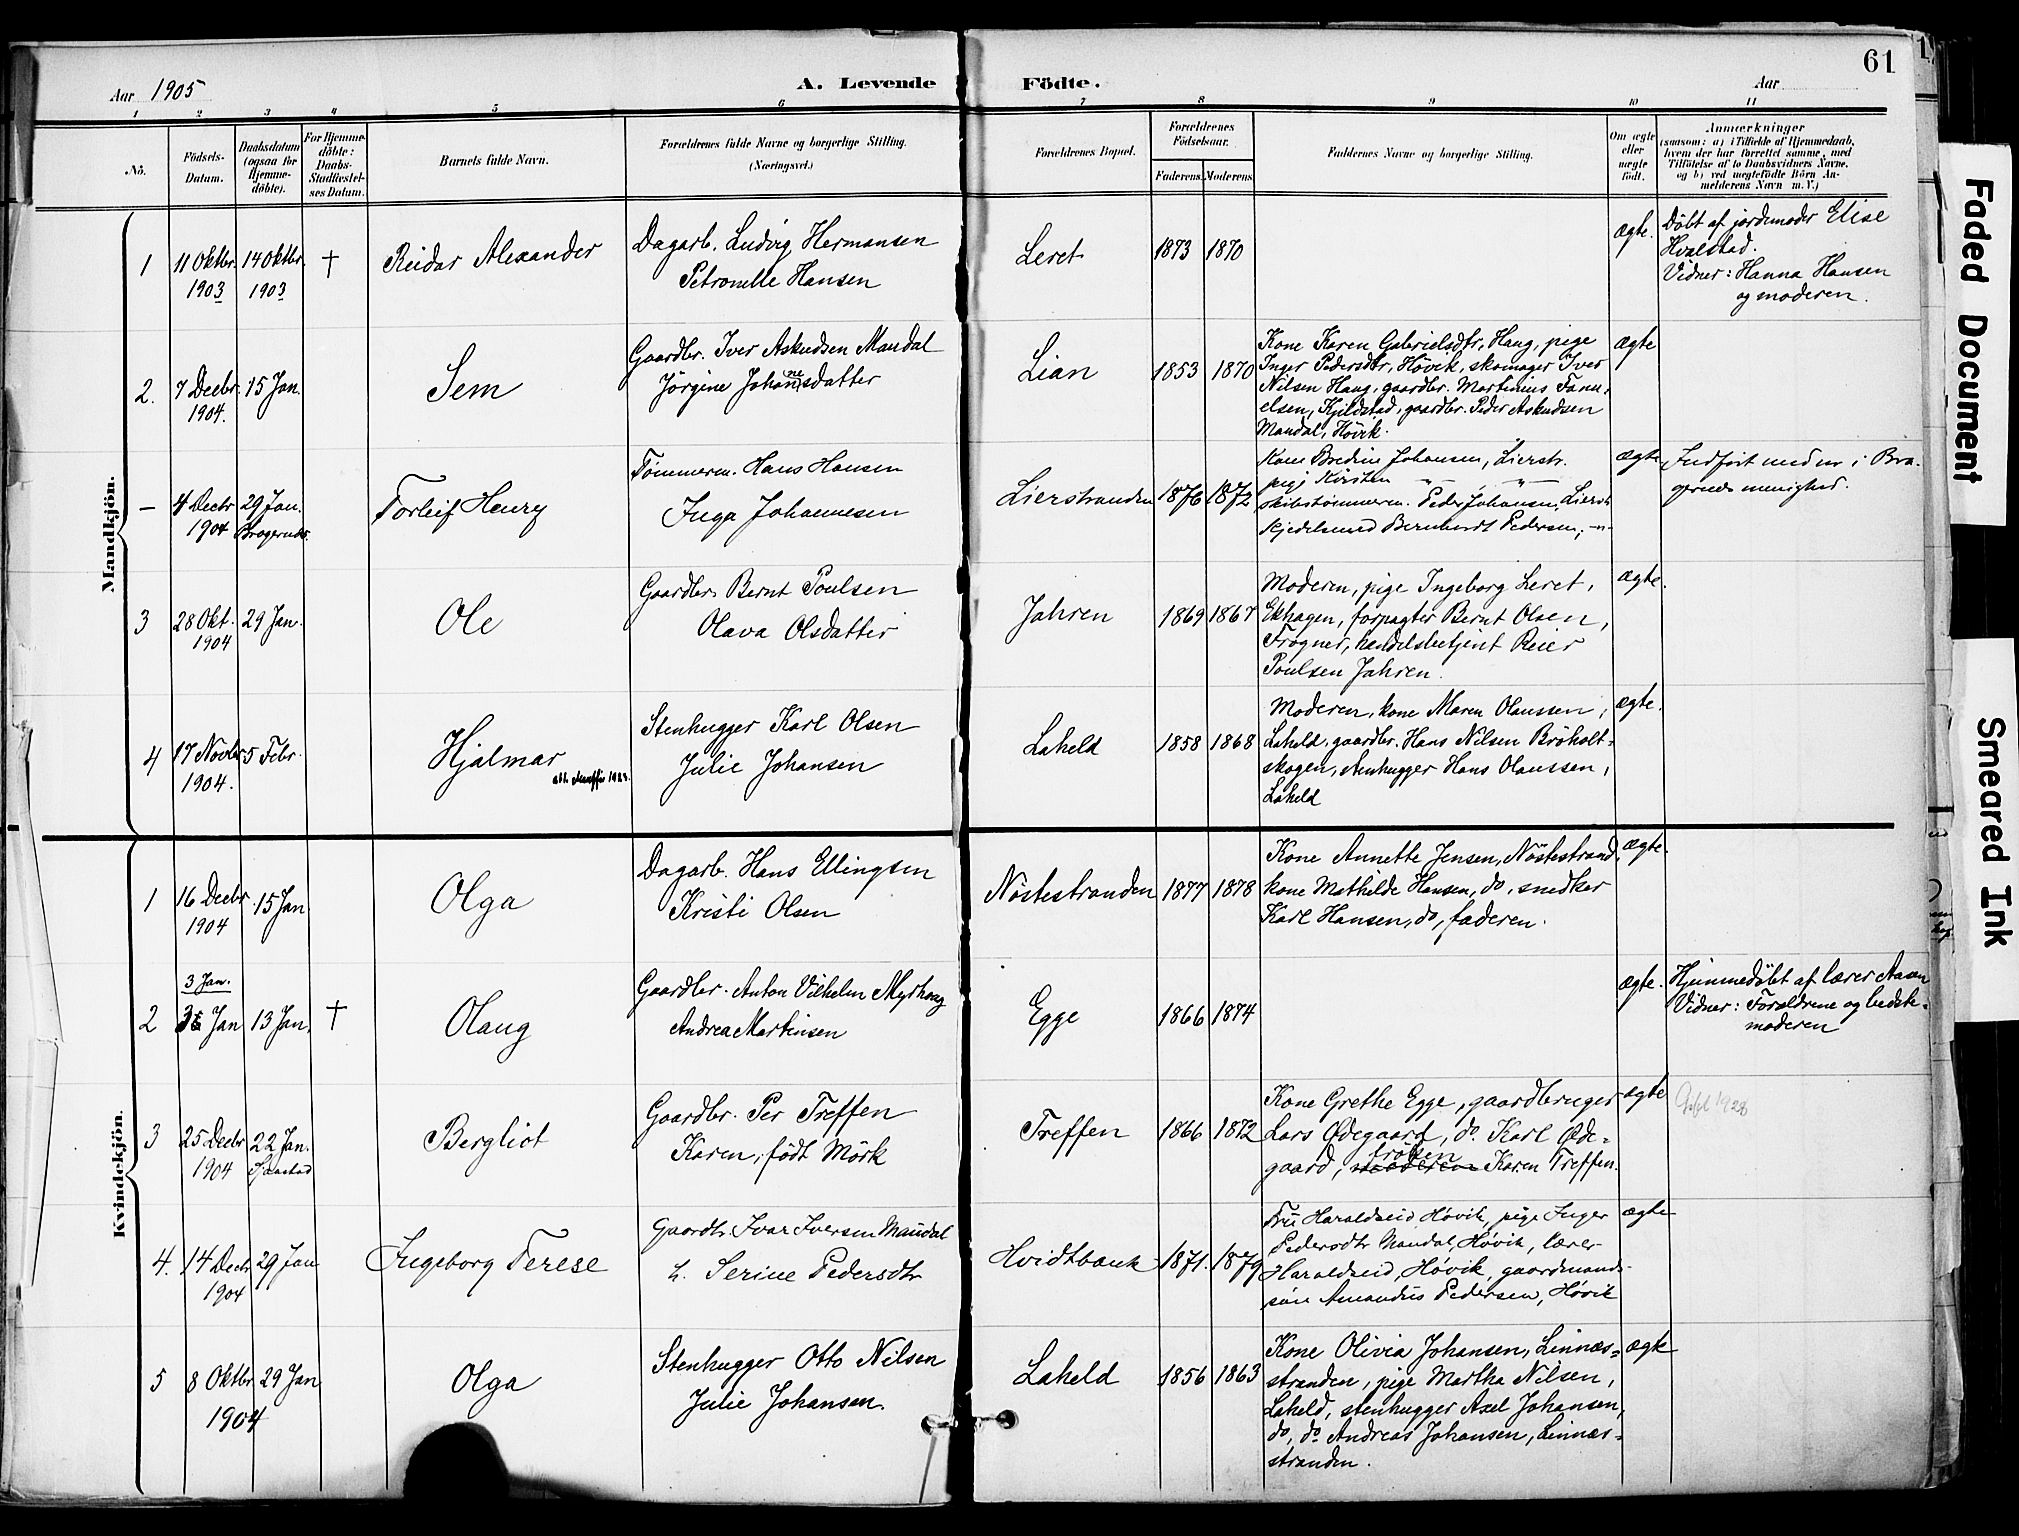 61
Aar 1905
A. Levende Födte.
Aar
1 2 3 4 5 6 7 8 9 10 11
No.
Födsels-
Datum.
Daabsdatum
(ogsaa for
Hjemme-
döbte).
For Hjemme-
döbte:
Daabs-
Stadfæstel-
ses Datum.
Barnets fulde Navn.
Forældrenes fulde Navne og borgerlige Stilling.
(Næringsvei.)
Forældrenes Bopæl.
Forældrenes
Födselsaar.
Faderens. Moderens.
Faddernes Navne og borgerlige Stilling.
Om ægte
eller
uægte
födt.
Anmærkninger
(saasom: a) i Tilfælde af Hjemmedaab,
hvem der har forrettet samme, med
Tilföielse af to Daabsvidners Navne.
og b) ved uægtefödte Börn An-
melderens Navn m. V.)
Mandkjön.
1 11 Oktbr. 1903
14 Oktbr. 1903
†
Reidar Alexander
Dagarb. Ludvig Hermansen
Petronelle Hansen
Leret
1873 1870
ægte.
Döbt af jordemoder Elise
Hvalstad.
Vidner: Hanna Hansen
og moderen.
2. 7 Decbr. 1904.
15 Jan.
Sem
Gaardbr. Iver Askudsen Mandal
Jörgine Johannesdatter
Lian
1853 1870
Kone Karen Gabrielsdtr, Haug, pige
Inger Pedersdtr, Hövik, skomager Iver
Nilsen Haug, gaardbr. Martinius
elsen, Kjildstad, gaardbr. Peder Askudsen
Mandal, Hövik.
ægte
– 4 Decbr 1904
29 Jan.
Bragernæs.
Torleif Henry
Tömmerm. Hans Hansen
Inga Johannesen
Lierstranden
1876 1872
Kone Bredine Johansen, Lierstr.
pige Kirsten – " – – " –
skibstömmerm. Peder Johansen, Lierstr.
Kjedelsmed Bernhardt Pedersen, –"–
ægte
Indfört med nr i Bra-
gernes menighed.
3 28 Okt. 1904
29 Jan.
Ole
Gaardbr. Bernt Poulsen
Olava Olsdatter
Jahren
1869 1867
Moderen, pige Ingeborg Leret,
Ekhagen, forpagter Bernt Olsen,
Frogner, handelsbetjent Reier
Poulsen Jahren.
ægte.
4 17 Novbr 1904.
5 Febr.
Hjalmar
1923.
Stenhugger Karl Olsen
Julie Johansen
Laheld
1858 1868
Moderen, kone Maren Olaussen,
Laheld, gaardbr. Hans Nilsen Bröholt-
skogen, stenhugger Hans Olaussen,
Laheld
ægte.
Kvindekjön.
1 16 Decbr. 1904
15 Jan
Olga
Dagarb. Hans Ellingsen
Kristi Olsen
Nöstestranden
1877 1878
Kone Annette Jensen, Nöstestrand,
kone Mathilde Hansen, do, snedker
Karl Hansen, do, faderen.
ægte.
3 Jan.
2 Jan
13 Jan.
†
Olaug
Gaardbr. Anton Vilhelm Myrhaug
Andrea Martinsen
Egge
1866 1874
ægte.
Hjemmedöbt af lærer Aasen
Vidner: Forældrene og bedste-
moderen
3 25 Decbr 1904
22 Jan.
Sjaastad
Bergliot
Gaardbr. Per Treffen
Karen, födt Mörk
Treffen
1866 1872
Kone Grethe Egge, gaardbruger
Lars Ödegaard, do. Karl Öde-
gaard, fröken moderen Karen Treffen.
ægte
1928
4. 14 Decbr 1904
29 Jan
Ingeborg Terese
Gaardbr. Ivar Iversen Mandal
h. Serine Pedersdtr
Hvidtbank
1871. 1879
Fru Haraldseid, Hövik, pige Inger
Pedersdtr Mandal, Hövik, lærer
Haraldseid, Hövik, gaardmands-
sön Amandus Pedersen, Hövik
ægte
5 8 Oktbr 1904
29 Jan
Olga
Stenhugger Otto Nilsen
Julie Johansen.
Laheld
1856 1863
Kone Olivia Johansen, Linnæs-
stranden, pige Martha Nilsen,
Laheld, stenhugger Axel Johansen,
do, do Andreas Johansen, Linnæs-
stranden.
ægte
Faded Document
Smeared Ink